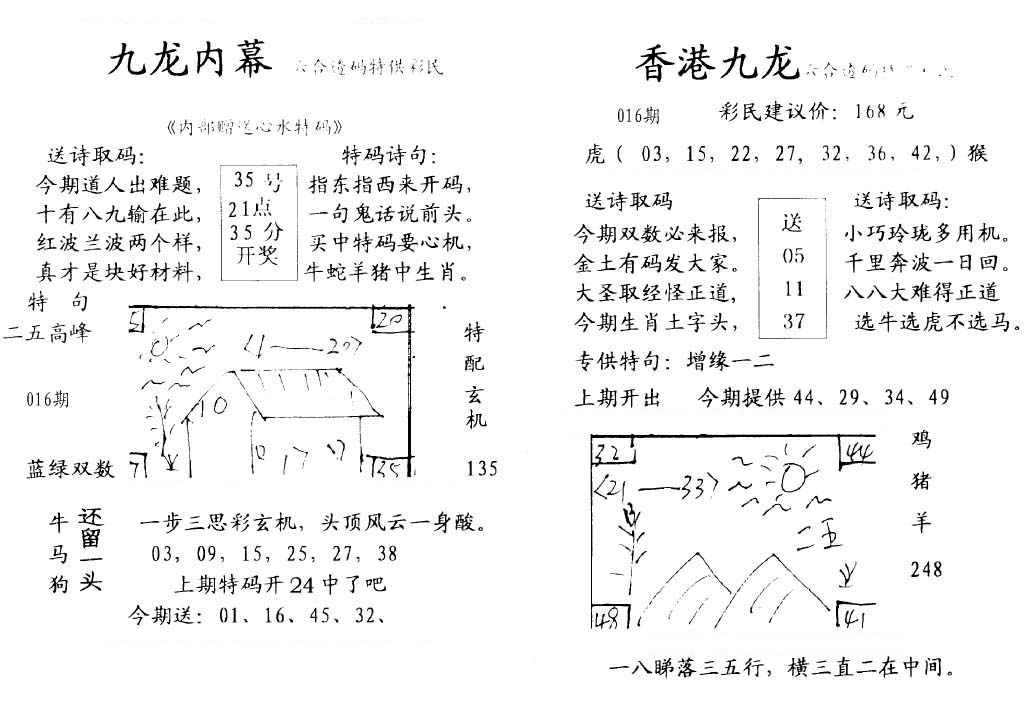 九龙内幕 六合透码特供彩民
《内部赠送心水特码》
送诗取码：
今期道人出难题，
十有八九输在此，
红波兰波两个样，
真才是块好材料，
35 号
21点
35 分
开奖
特码诗句：
指东指西来开码，
一句鬼话说前头。
买中特码要心机，
牛蛇羊猪中生肖。
特 句
二五高峰
016期
蓝绿双数
5 20
<1——20>
10
17
7 35
特配玄机
135
牛马狗
还留一头
一步三思彩玄机，头顶风云一身酸。
03，09，15，25，27，38
上期特码开24中了吧
今期送：01、16、45、32、
香港九龙 六合透码
016期 彩民建议价：168元
虎（ 03，15，22，27，32，36，42，）猴
送诗取码
今期双数必来报，
金土有码发大家。
大圣取经怪正道，
今期生肖土字头，
送
05
11
37
送诗取码：
小巧玲珑多用机。
千里奔波一日回。
八八大难得正道
选牛选虎不选马。
专供特句：增缘一二
上期开出 今期提供44、29、34、49
32 44
<21——33>
二五
48 41
鸡
猪
羊
248
一八睇落三五行，横三直二在中间。